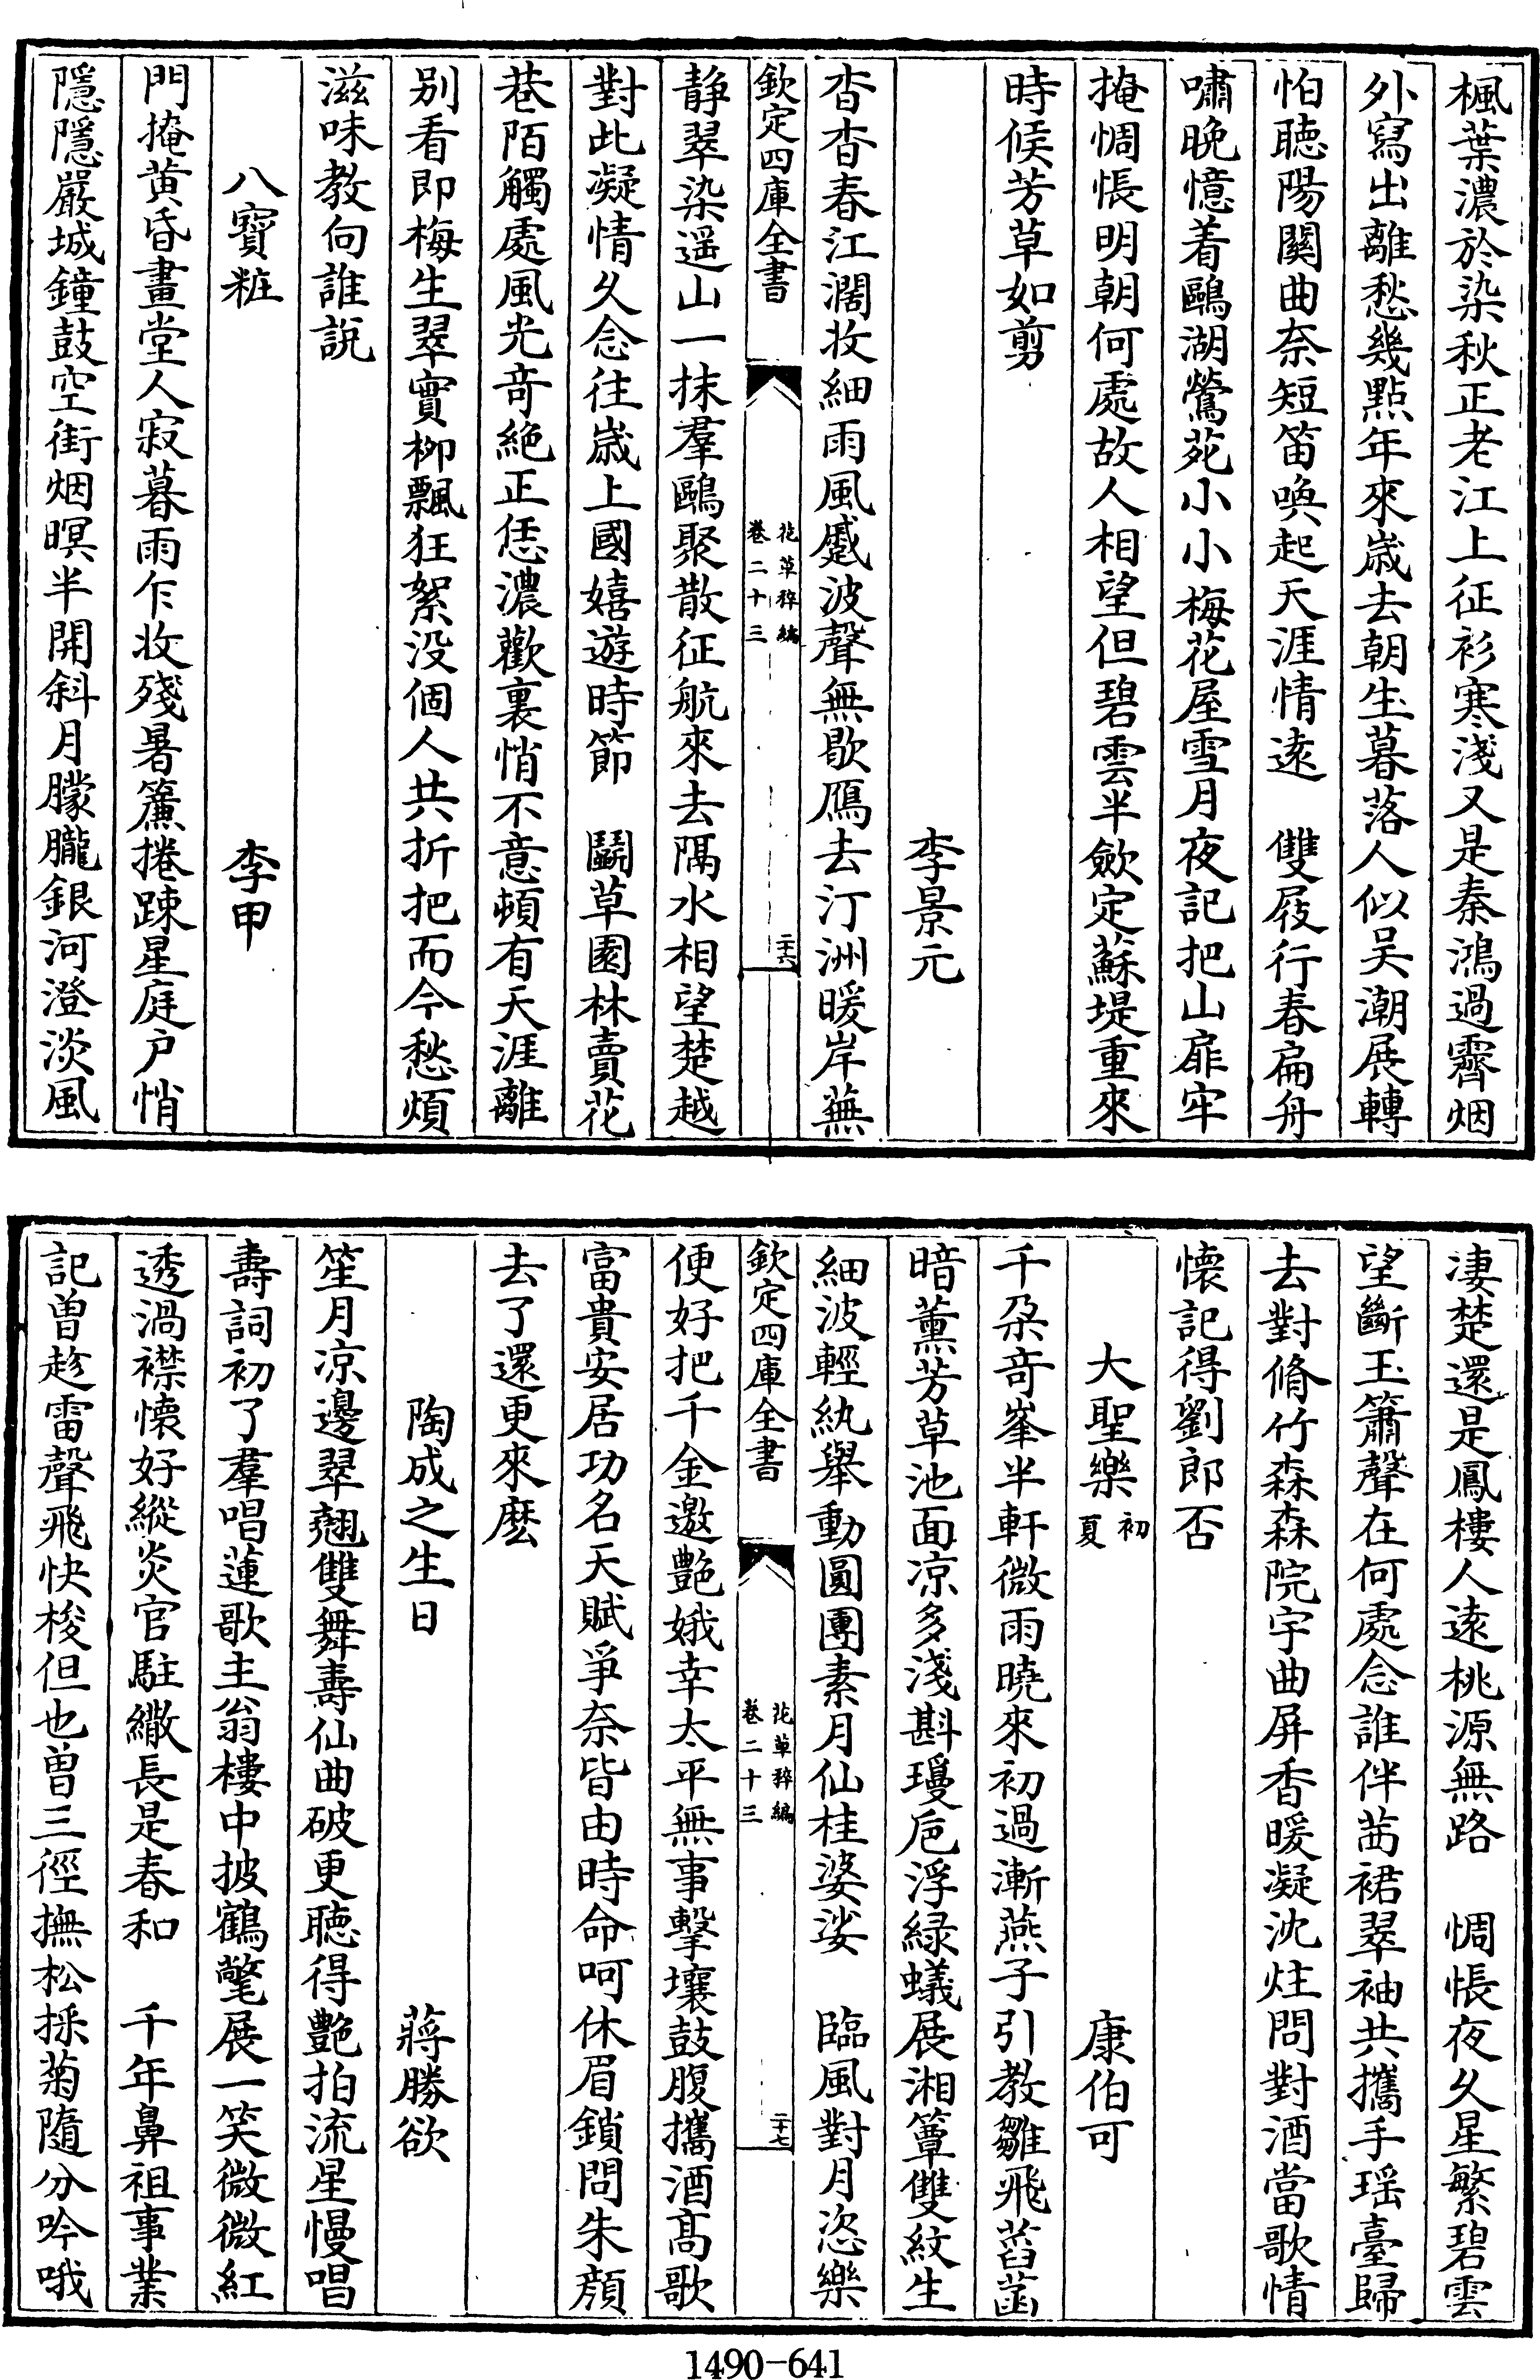 楓葉濃於染秋正老江上征衫寒淺又是秦鴻過霽烟
外寫出離愁幾點年來嵗去朝生暮落人似吴潮展轉
怕聴陽關曲奈短笛喚起天涯情逺　雙屐行春扁舟
嘯晩憶着鷗湖鶯苑小小梅花屋雪月夜記把山扉牢
掩惆悵明朝何處故人相望但碧雲半斂定蘇堤重來
時候芳草如剪
李景元
杳杳春江濶收細雨風蹙波聲無歇鴈去汀洲暖岸蕪
欽定四庫全書　花草稡編卷二十三　二十六
静翠染遥山一抹羣鷗聚散征航來去隔水相望楚越
對此凝情久念往嵗上國嬉遊時節　鬭草園林賣花
巷陌觸處風光竒絶正恁濃歡裏悄不意頓有天涯離
别看即梅生翠實柳飄狂絮没個人共折把而今愁煩
滋味教向誰説
八寳粧　李甲
門掩黄昏畫堂人寂暮雨乍收殘暑簾捲踈星庭户悄
隱隱嚴城鐘鼓空街烟暝半開斜月朦朧銀河澄淡風
凄楚還是鳳樓人逺桃源無路　惆悵夜久星繁碧雲
望斷玉簫聲在何處念誰伴茜裙翠袖共攜手瑶臺歸
去對脩竹森森院宇曲屏香暖凝沈炷問對酒當歌情
懐記得劉郎否
大聖樂初夏　康伯可
千朶竒峯半軒微雨曉來初過漸燕子引教雛飛菡萏
暗薫芳草池面凉多淺斟瓊巵浮緑蟻展湘簟雙紋生
細波輕紈舉動圓團素月仙桂婆娑　臨風對月恣樂
欽定四庫全書　花草稡編卷二十三　二十七
便好把千金邀艶娥幸太平無事擊壤鼓腹攜酒髙歌
富貴安居功名天賦爭奈皆由時命呵休眉鎖問朱顔
去了還更來麽
陶成之生日　蔣勝欲
笙月凉邊翠翹雙舞壽仙曲破更聴得艶拍流星慢唱
壽詞初了羣唱蓮歌主翁樓中披鶴氅展一笑微微紅
透渦襟懐好縱炎官駐繖長是春和　千年鼻祖事業
記曽趁雷聲飛快梭但也曽三徑撫松採菊隨分吟哦
1490-641